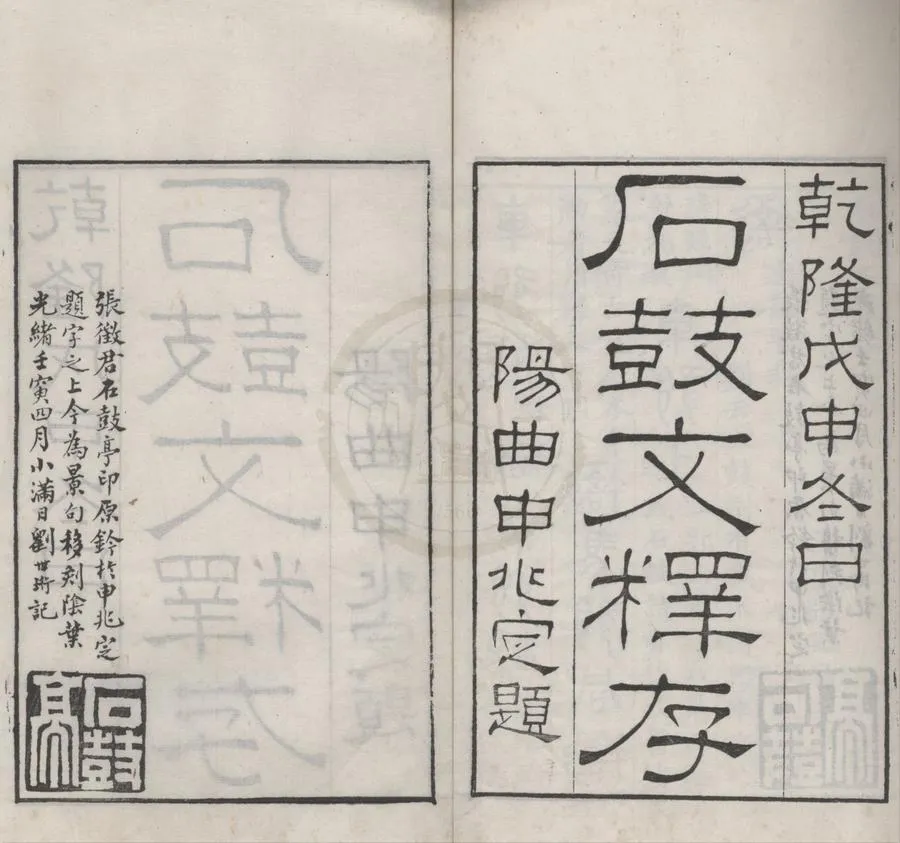 乾隆戊申冬日
石鼓文釋存
陽曲申兆定題
張徵君石鼓亭印原鈐於申兆定
題字之上今為景句移刻陰葉
光緒壬寅四月小滿日劉世珩記
石鼓亭